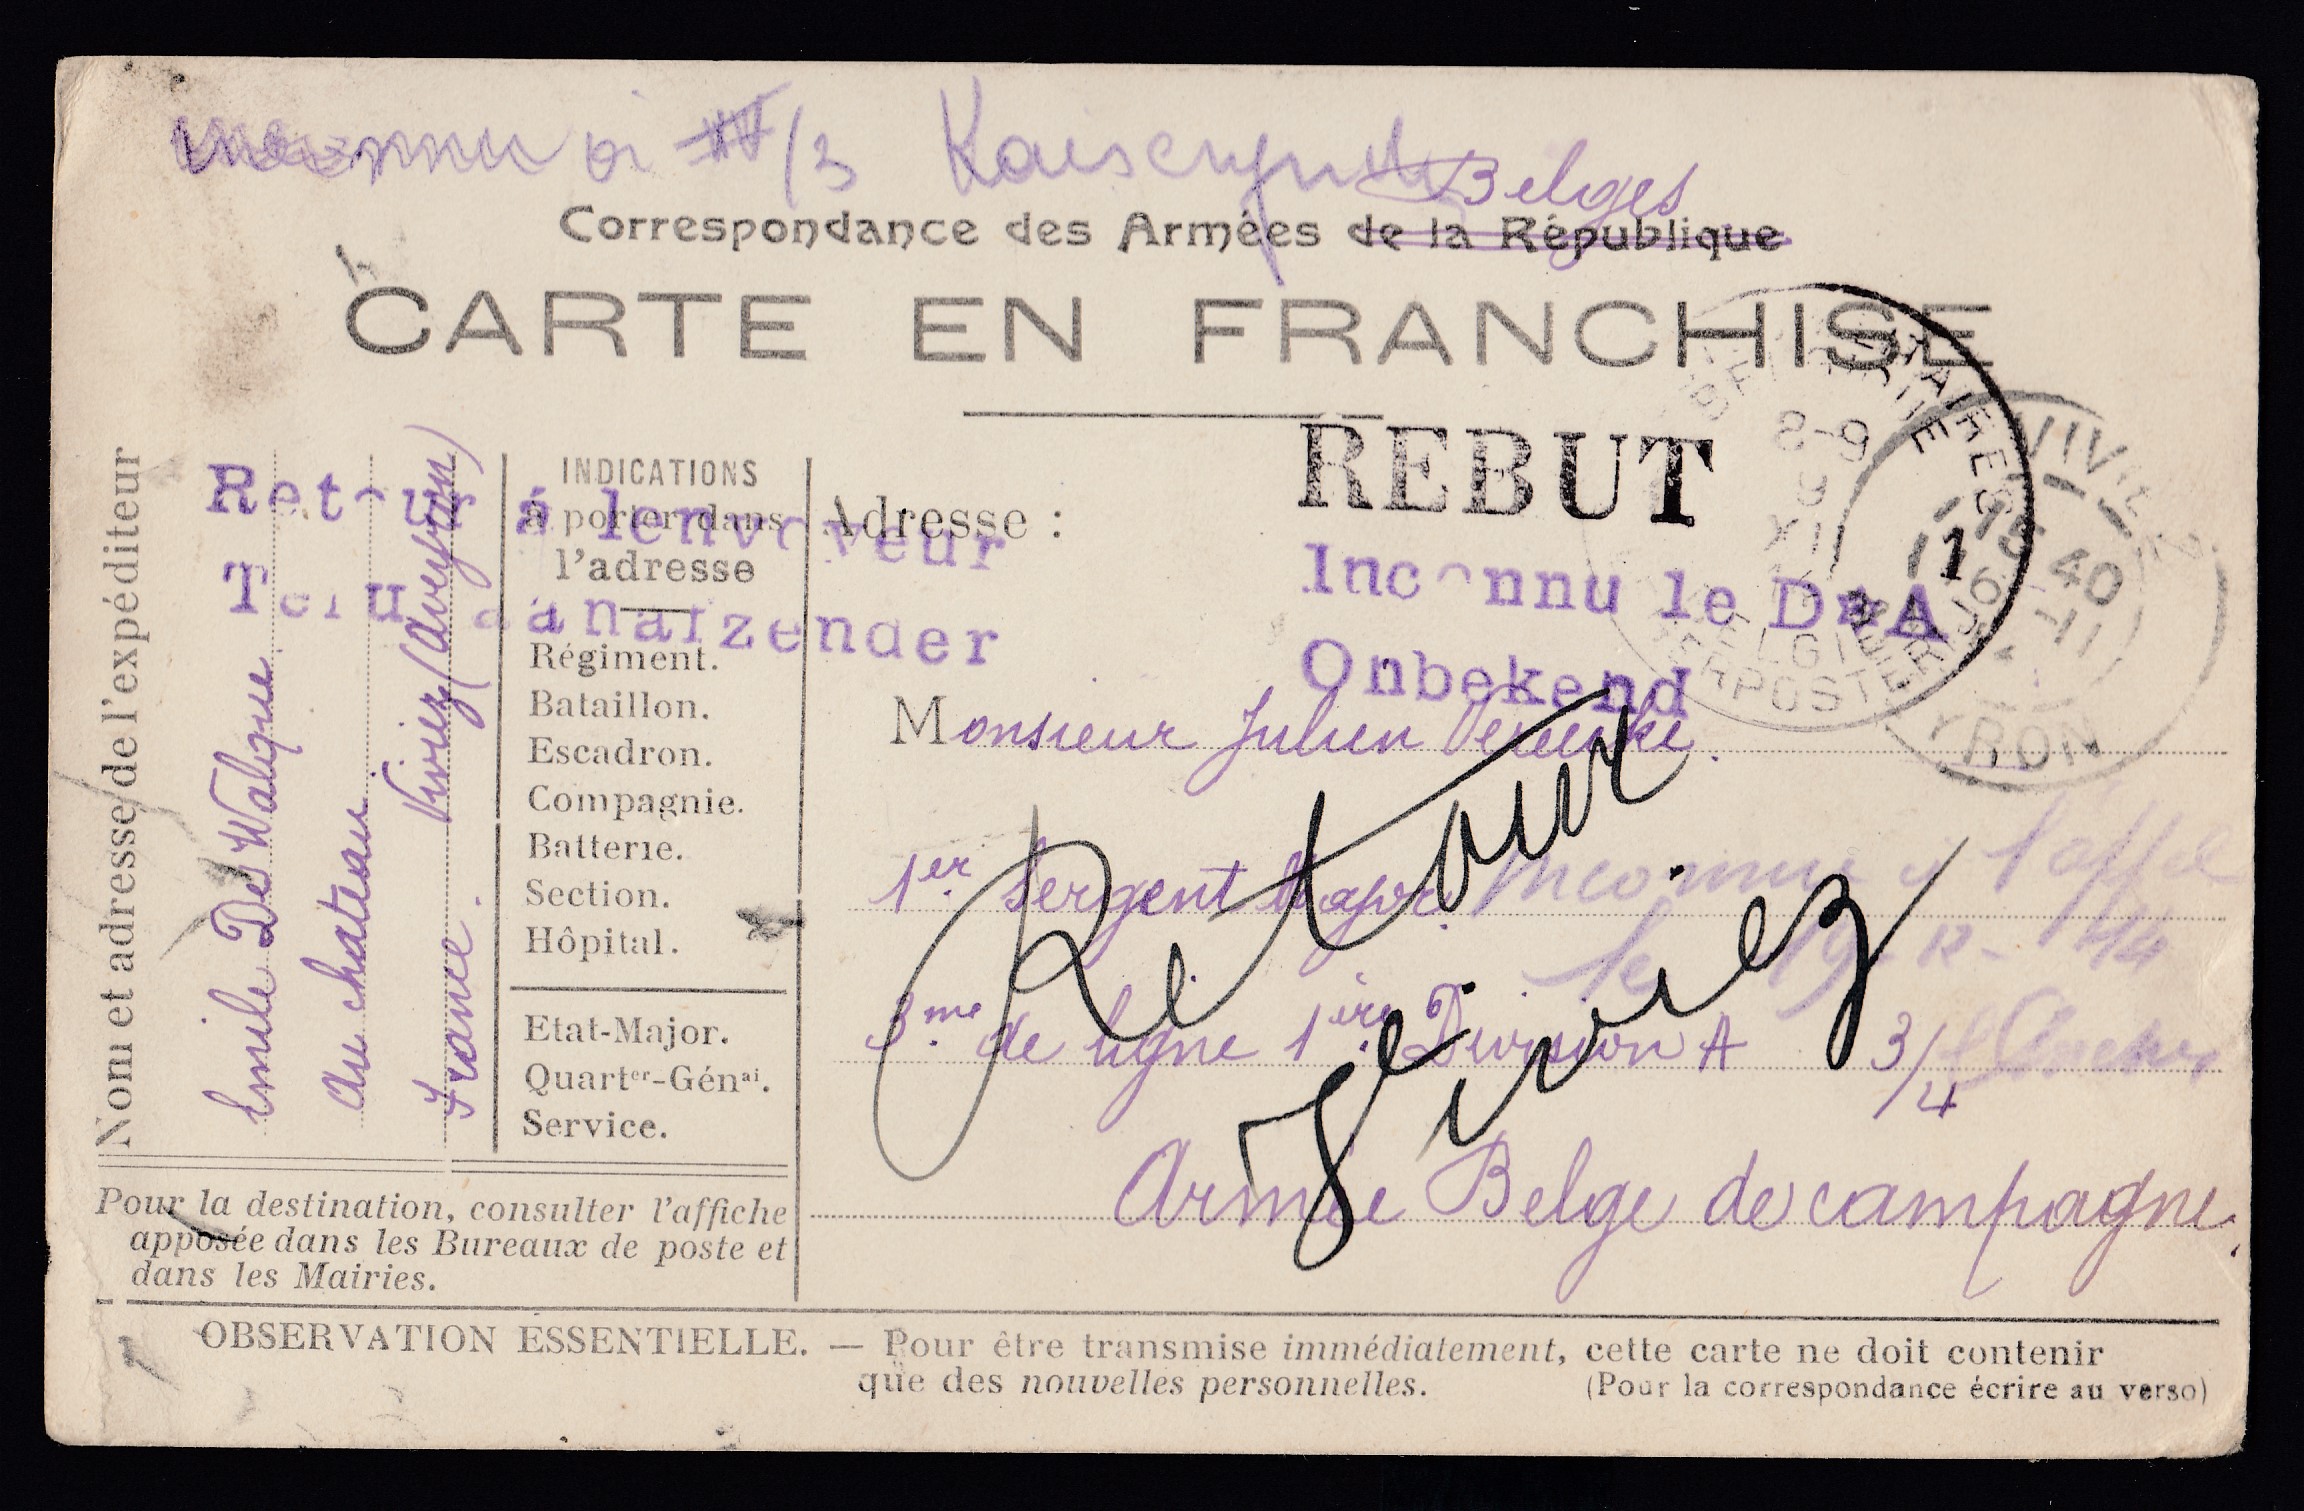 inconnu à IV/3
Belges
Correspondance des Armées de la République
CARTE EN FRANCHISE
REBUT
Retour à lenvoyeur
Terug aan afzender
Inconnu le D A
Onbekend
Nom et adresse de l'expéditeur
Emile De Walque
au chateau
Viviez (Aveyron)
France.
INDICATIONS
à porter dans
l'adresse
Régiment.
Bataillon.
Escadron.
Compagnie.
Batterie.
Section.
Hôpital.
Etat-Major.
Quartᵉʳ-Génᵃˡ.
Service.
Pour la destination, consulter l'affiche
apposée dans les Bureaux de poste et
dans les Mairies.
Adresse :
Monsieur Julien
1er Sergent Major.
Inconnu à l'app
le 19-12-14
3me de ligne 1ière Division A 3/4
Armée Belge de campagne.
Retour
Viviez
8-9
9
XII
BELGIE
1
VIVIEZ
15 40
16 -11
YRON
OBSERVATION ESSENTIELLE. — Pour être transmise immédiatement, cette carte ne doit contenir
que des nouvelles personnelles.
(Pour la correspondance écrire au verso)